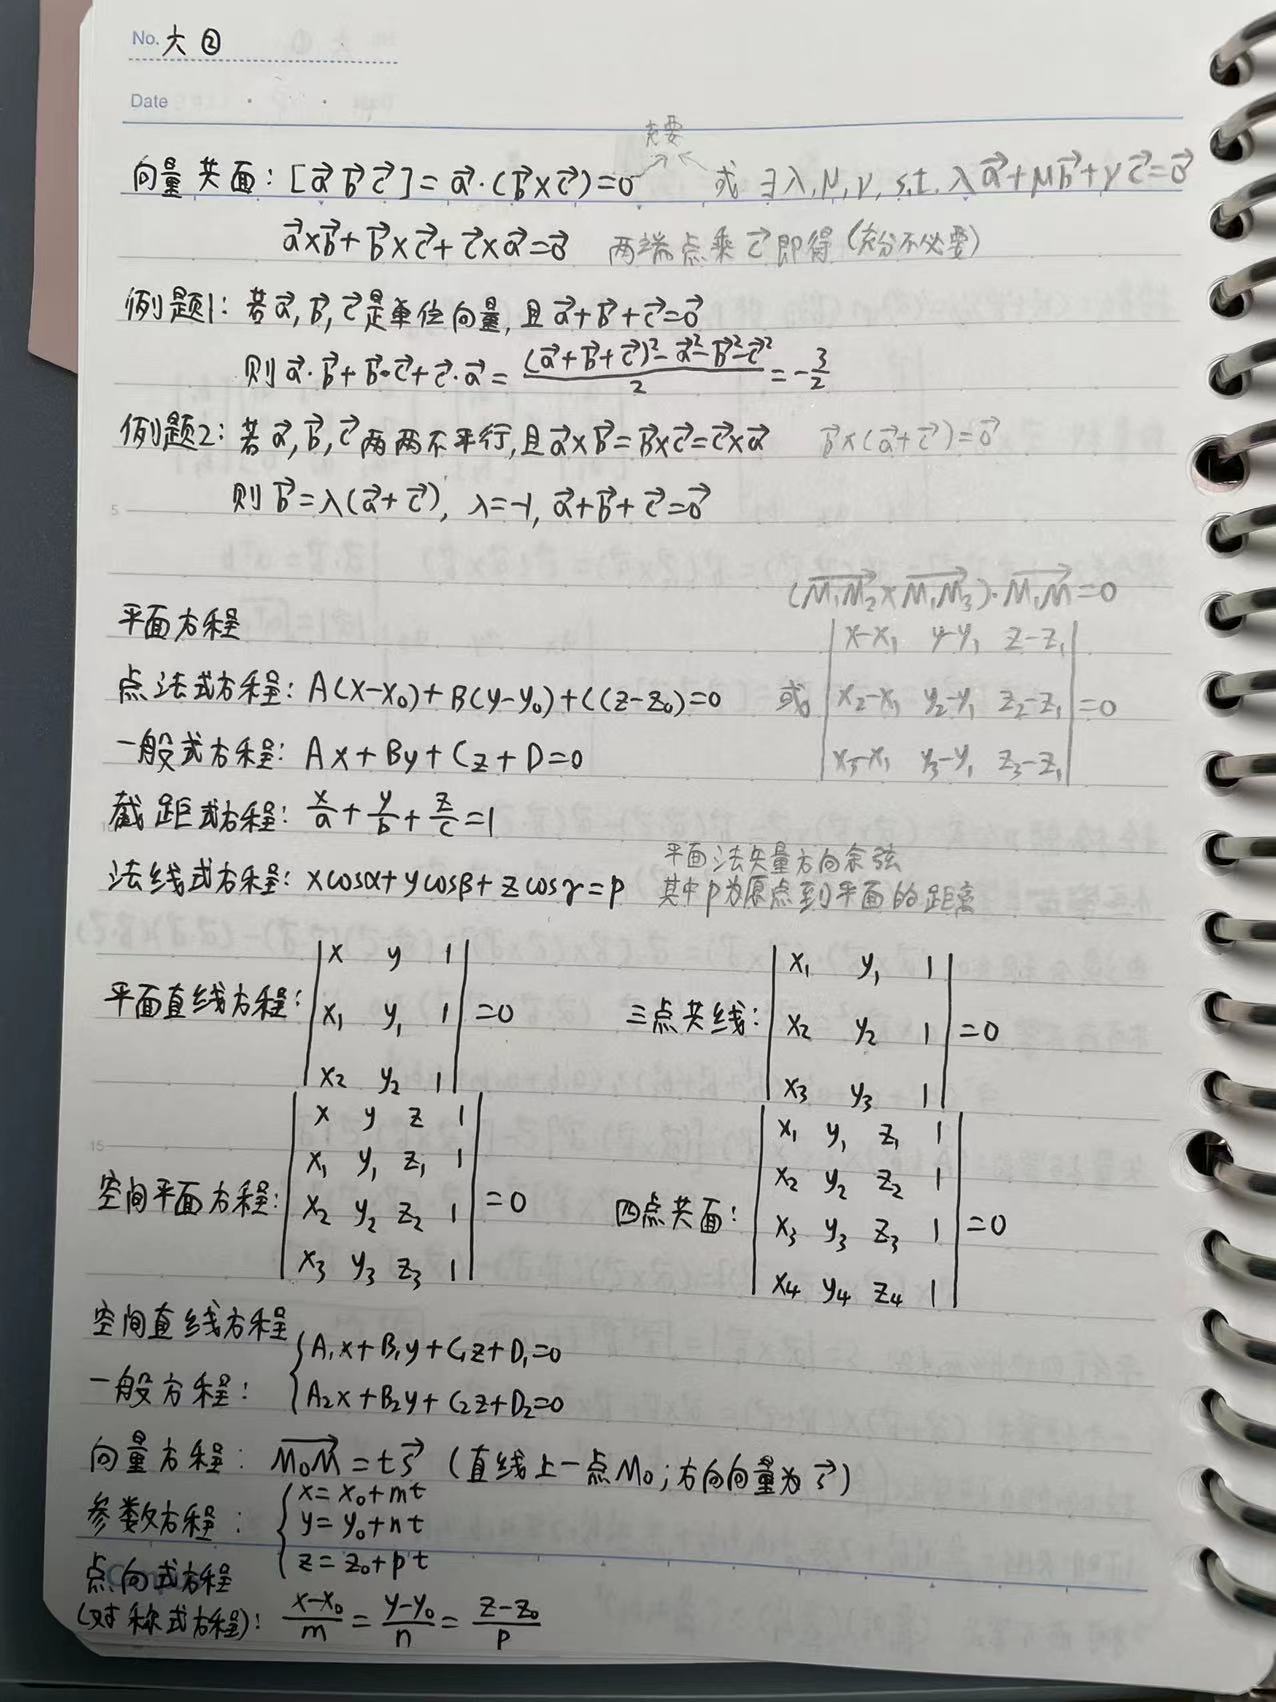 No. 六 ②
Date
充要
向量共面: [a⃗ b⃗ c⃗] = a⃗·(b⃗×c⃗)=0 或 ∃λ,μ,ν, s.t. λa⃗+μb⃗+γc⃗=0⃗
a⃗×b⃗+b⃗×c⃗+c⃗×a⃗=0⃗ 两端点乘c⃗即得(充分不必要)
例题1: 若a⃗,b⃗,c⃗是单位向量,且a⃗+b⃗+c⃗=0⃗
则a⃗·b⃗+b⃗·c⃗+c⃗·a⃗= ((a⃗+b⃗+c⃗)²-a⃗²-b⃗²-c⃗²)/2 = -3/2
例题2: 若a⃗,b⃗,c⃗两两不平行,且a⃗×b⃗=b⃗×c⃗=c⃗×a⃗ b⃗×(a⃗+c⃗)=0⃗
则b⃗=λ(a⃗+c⃗), λ=-1, a⃗+b⃗+c⃗=0⃗
5
(M₁M₂⃗×M₁M₃⃗)·M₁M⃗=0
平面方程
点法式方程: A(x-x₀)+B(y-y₀)+C(z-z₀)=0 或 |x-x₁ y-y₁ z-z₁|
|x₂-x₁ y₂-y₁ z₂-z₁|=0
|x₃-x₁ y₃-y₁ z₃-z₁|
一般式方程: Ax+By+Cz+D=0
截距式方程: x/a+y/b+z/c=1
平面法矢量方向余弦
法线式方程: xcosα+ycosβ+zcosγ=p 其中p为原点到平面的距离
平面直线方程: |x y 1|
|x₁ y₁ 1|=0
|x₂ y₂ 1|
三点共线: |x₁ y₁ 1|
|x₂ y₂ 1|=0
|x₃ y₃ 1|
15
空间平面方程: |x y z 1|
|x₁ y₁ z₁ 1|
|x₂ y₂ z₂ 1|=0
|x₃ y₃ z₃ 1|
四点共面: |x₁ y₁ z₁ 1|
|x₂ y₂ z₂ 1|
|x₃ y₃ z₃ 1|=0
|x₄ y₄ z₄ 1|
空间直线方程
一般方程: {A₁x+B₁y+C₁z+D₁=0
A₂x+B₂y+C₂z+D₂=0
向量方程: M₀M⃗=ts⃗ (直线上一点M₀;方向向量为s⃗)
参数方程: {x=x₀+mt
y=y₀+nt
z=z₀+pt
点向式方程
(对称式方程): (x-x₀)/m=(y-y₀)/n=(z-z₀)/p